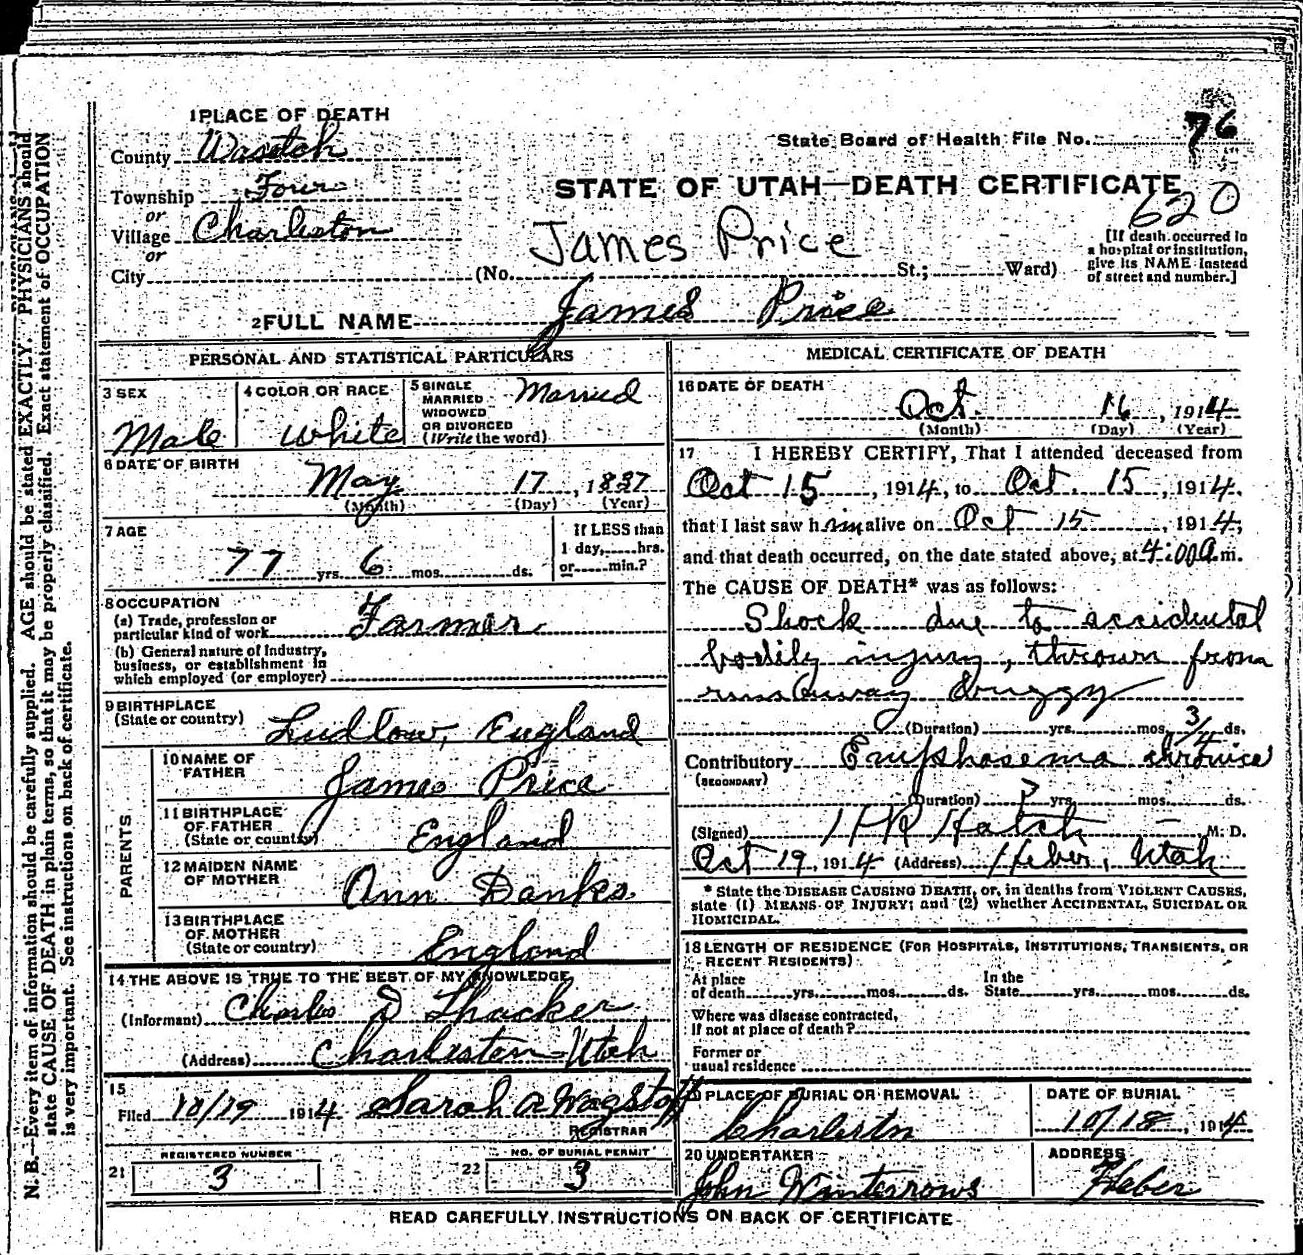 N. B.—Every item of information should be carefully supplied. AGE should be stated EXACTLY. PHYSICIANS should
state CAUSE OF DEATH in plain terms, so that it may be properly classified. Exact statement of OCCUPATION
is very important. See instructions on back of certificate.
1 PLACE OF DEATH
County Wasatch
Township Four
or
Village Charleston
or
City
State Board of Health File No. 76
STATE OF UTAH—DEATH CERTIFICATE
620
James Price
(No. St.; Ward)
[If death occurred in
a hospital or institution,
give its NAME instead
of street and number.]
2 FULL NAME James Price
PERSONAL AND STATISTICAL PARTICULARS
3 SEX
Male
4 COLOR OR RACE
White
5 SINGLE
MARRIED
WIDOWED
OR DIVORCED
(Write the word)
Married
6 DATE OF BIRTH
May 17, 1837
(Month) (Day) (Year)
7 AGE
77 yrs. 6 mos. ds.
If LESS than
1 day, hrs.
or min.?
8 OCCUPATION
(a) Trade, profession or
particular kind of work Farmer
(b) General nature of industry,
business, or establishment in
which employed (or employer)
9 BIRTHPLACE
(State or country) Ludlow, England
PARENTS
10 NAME OF
FATHER James Price
11 BIRTHPLACE
OF FATHER
(State or country) England
12 MAIDEN NAME
OF MOTHER Ann Danks
13 BIRTHPLACE
OF MOTHER
(State or country) England
14 THE ABOVE IS TRUE TO THE BEST OF MY KNOWLEDGE
(Informant) Charles D Thacker
(Address) Charleston Utah
15
Filed 10/19 1914 Sarah A Wagstaff
REGISTRAR
21 REGISTERED NUMBER
3
22 NO. OF BURIAL PERMIT
3
MEDICAL CERTIFICATE OF DEATH
16 DATE OF DEATH
Oct. 16, 1914
(Month) (Day) (Year)
17 I HEREBY CERTIFY, That I attended deceased from
Oct 15, 1914, to Oct. 15, 1914.
that I last saw him alive on Oct 15, 1914,
and that death occurred, on the date stated above, at 4:00 a.m.
The CAUSE OF DEATH* was as follows:
Shock due to accidental
bodily injury, thrown from
runaway buggy
(Duration) yrs. mos. 3/4 ds.
Contributory Emphasema chronice
(SECONDARY)
(Duration) ? yrs. mos. ds.
(Signed) H R Hatch M. D.
Oct 19, 1914 (Address) Heber, Utah
* State the DISEASE CAUSING DEATH, or, in deaths from VIOLENT CAUSES,
state (1) MEANS OF INJURY; and (2) whether ACCIDENTAL, SUICIDAL OR
HOMICIDAL.
18 LENGTH OF RESIDENCE (FOR HOSPITALS, INSTITUTIONS, TRANSIENTS, OR
RECENT RESIDENTS)
At place In the
of death yrs. mos. ds. State yrs. mos. ds.
Where was disease contracted,
if not at place of death?
Former or
usual residence
19 PLACE OF BURIAL OR REMOVAL
Charlestn
DATE OF BURIAL
10/18, 1914
20 UNDERTAKER
John Winterrows
ADDRESS
Heber
READ CAREFULLY INSTRUCTIONS ON BACK OF CERTIFICATE